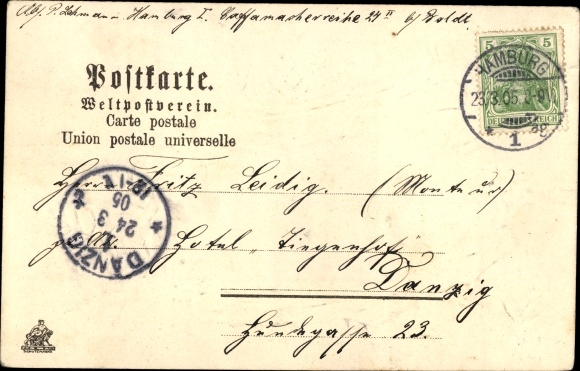 Abs. P. Lehmann Hamburg I. Caffamacherreihe 27 II b/ Boldt
Postkarte.
Weltpostverein.
Carte postale
Union postale universelle
5 5
DEUTSCHES REICH
HAMBURG
23/3.05.
1
Herrn Fritz Leidig. (Monteur)
p. Ad. Hotel „Tiegenhof"
Danzig
Hundegasse 23.
DANZIG
24 3
05